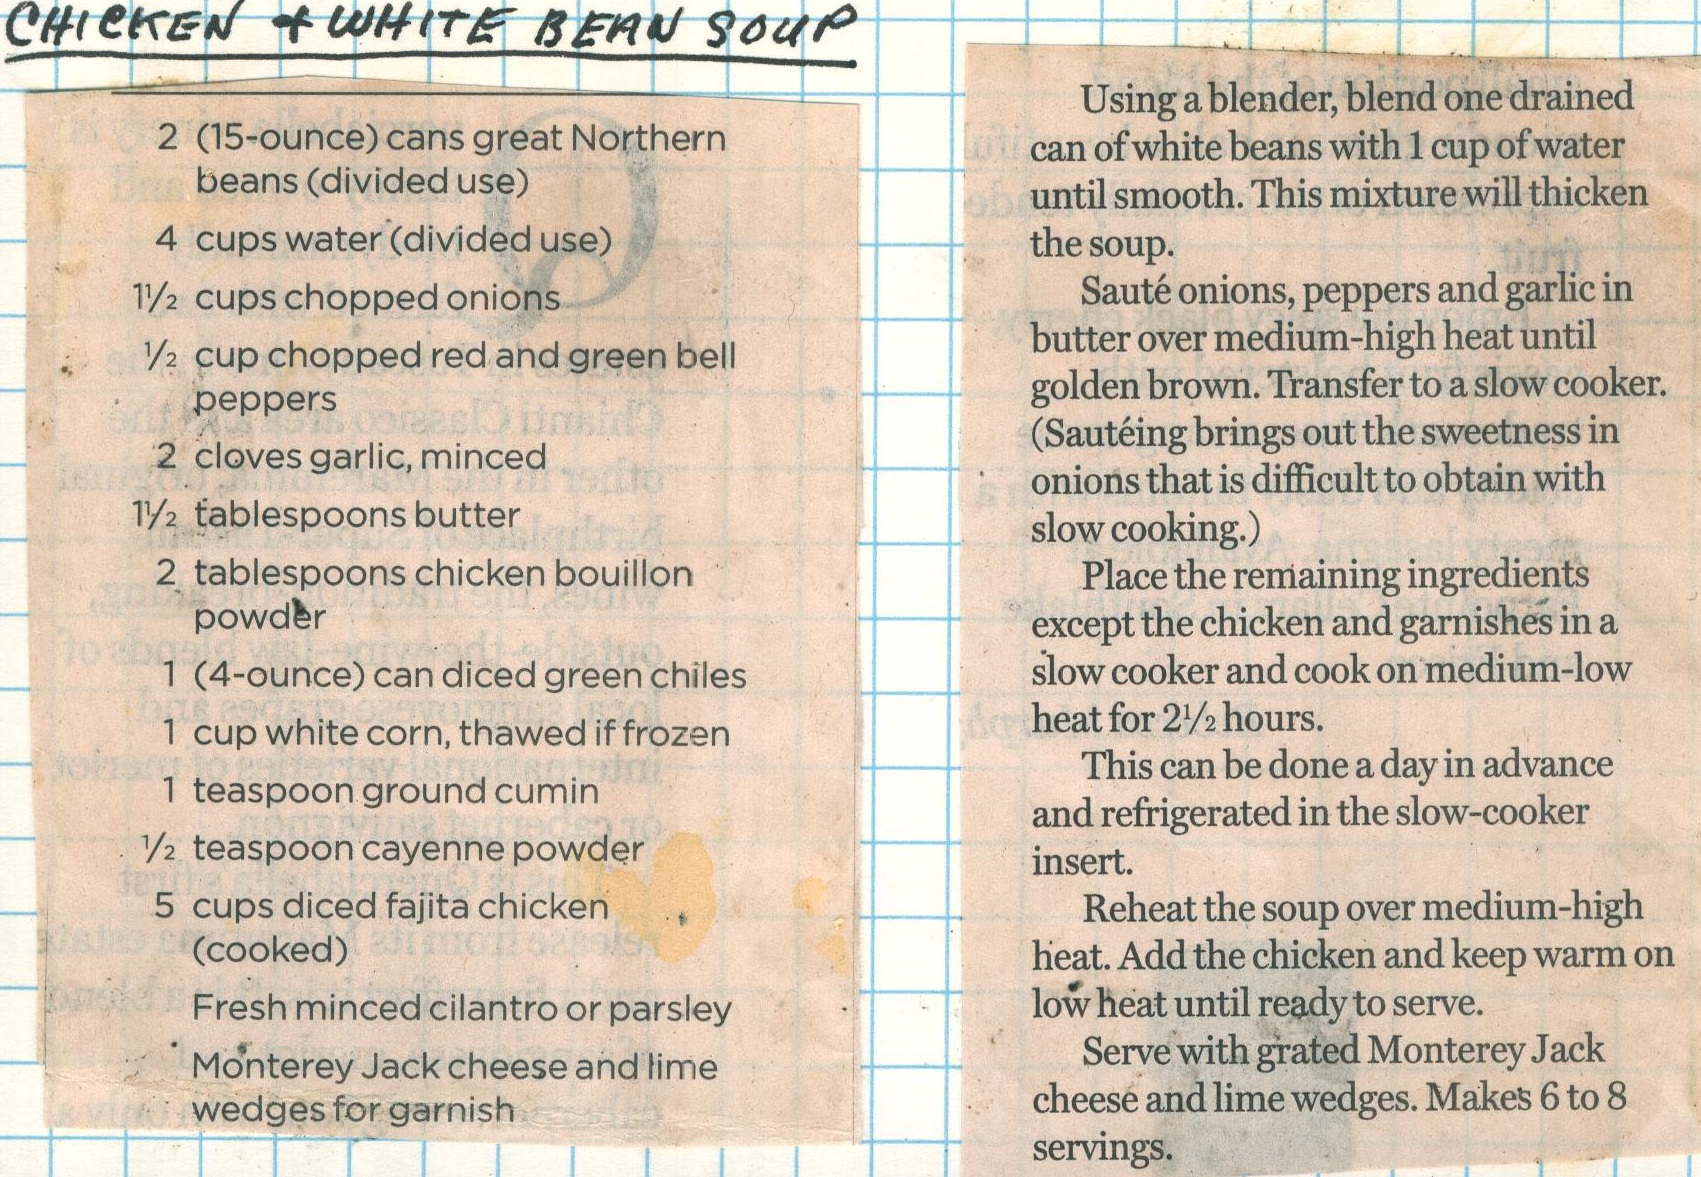 CHICKEN + WHITE BEAN SOUP
2 (15-ounce) cans great Northern
beans (divided use)
4 cups water (divided use)
1½ cups chopped onions
½ cup chopped red and green bell
peppers
2 cloves garlic, minced
1½ tablespoons butter
2 tablespoons chicken bouillon
powder
1 (4-ounce) can diced green chiles
1 cup white corn, thawed if frozen
1 teaspoon ground cumin
½ teaspoon cayenne powder
5 cups diced fajita chicken
(cooked)
Fresh minced cilantro or parsley
Monterey Jack cheese and lime
wedges for garnish
Using a blender, blend one drained
can of white beans with 1 cup of water
until smooth. This mixture will thicken
the soup.
Sauté onions, peppers and garlic in
butter over medium-high heat until
golden brown. Transfer to a slow cooker.
(Sautéing brings out the sweetness in
onions that is difficult to obtain with
slow cooking.)
Place the remaining ingredients
except the chicken and garnishes in a
slow cooker and cook on medium-low
heat for 2½ hours.
This can be done a day in advance
and refrigerated in the slow-cooker
insert.
Reheat the soup over medium-high
heat. Add the chicken and keep warm on
low heat until ready to serve.
Serve with grated Monterey Jack
cheese and lime wedges. Makes 6 to 8
servings.